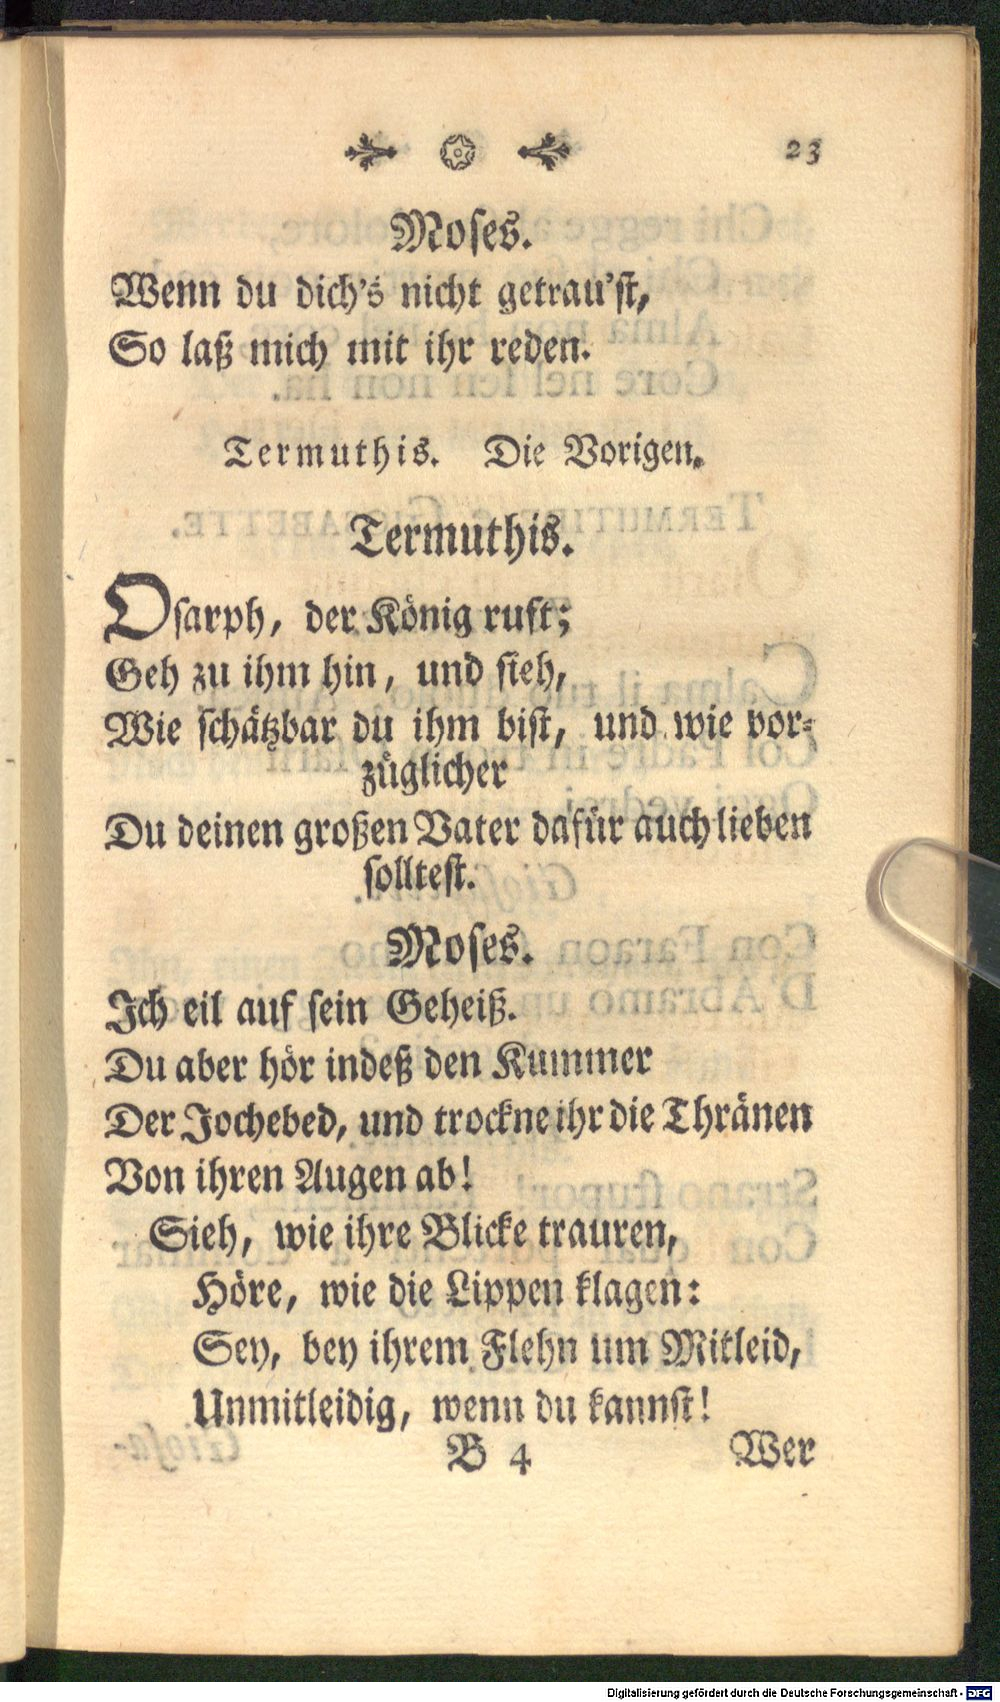 23
Moses.
Wenn du dich's nicht getrau'st,
So laß mich mit ihr reden.
Termuthis. Die Vorigen.
Termuthis.
Osarph, der König ruft;
Geh zu ihm hin, und sieh,
Wie schätzbar du ihm bist, und wie vor-
züglicher
Du deinen großen Vater dafür auch lieben
solltest.
Moses.
Ich eil auf sein Geheiß.
Du aber hör indeß den Kummer
Der Jochebed, und trockne ihr die Thränen
Von ihren Augen ab!
Sieh, wie ihre Blicke trauren,
Höre, wie die Lippen klagen:
Sey, bey ihrem Flehn um Mitleid,
Unmitleidig, wenn du kannst!
B 4 Wer
Digitalisierung gefördert durch die Deutsche Forschungsgemeinschaft - DFG